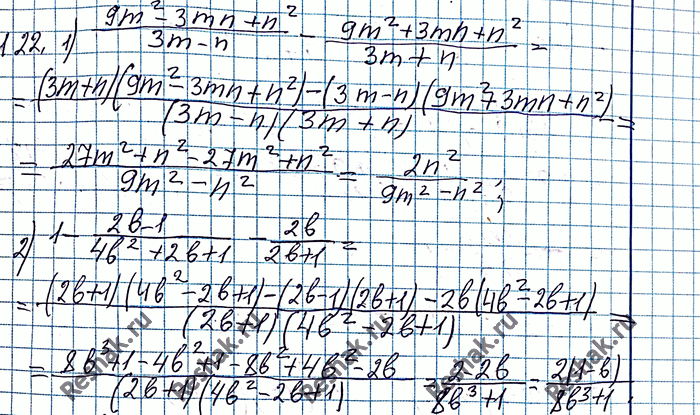 122. 1) (9m² - 3mn + n²)/(3m - n) - (9m² + 3mn + n²)/(3m + n) =
= ((3m+n)(9m² - 3mn + n²) - (3m - n)(9m² + 3mn + n²))/((3m - n)(3m + n)) =
= (27m² + n² - 27m² + n²)/(9m² - n²) = 2n²/(9m² - n²);
2) 1 - (2b - 1)/(4b² + 2b + 1) - 2b/(2b + 1) =
= ((2b+1)(4b² - 2b + 1) - (2b - 1)(2b + 1) - 2b(4b² - 2b + 1))/((2b+1)(4b² - 2b + 1) =
= (8b³ + 1 - 4b² + 1 - 8b² + 4b² - 2b)/((2b+1)(4b² - 2b + 1) = (2 - 2b)/(8b³ + 1) = 2(1 - b)/(8b³ + 1).
Reshak.ru
Reshak.ru
Reshak.ru
Reshak.ru